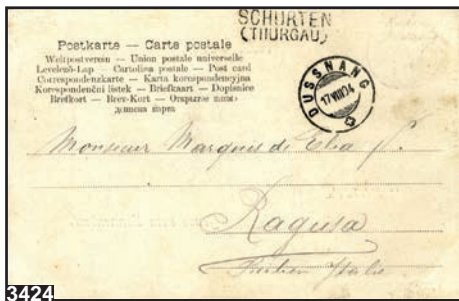 SCHURTEN
(THURGAU)
Postkarte — Carte postale
Weltpostverein — Union postale universelle
Levelező-Lap — Cartolina postale — Post card
Correspondenzkarte — Karta korespondencyjna
Korespondenční lístek — Briefkaart — Dopisnice
Brefkort — Brev-Kort — Открытое письмо
DUSSNANG
17 VIII 04
Monsieur Marquis de
Ragusa
3424